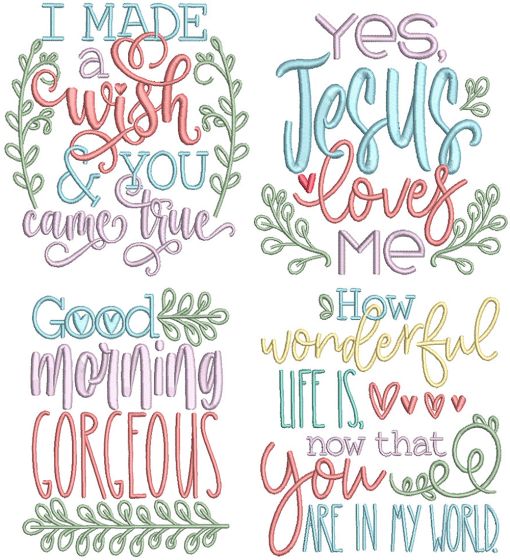 I MADE
a
wish
& YOU
came true
Yes,
Jesus
loves
Me
Good
morning
GORGEOUS
How
wonderful
LIFE IS,
now that
you
ARE IN MY WORLD.